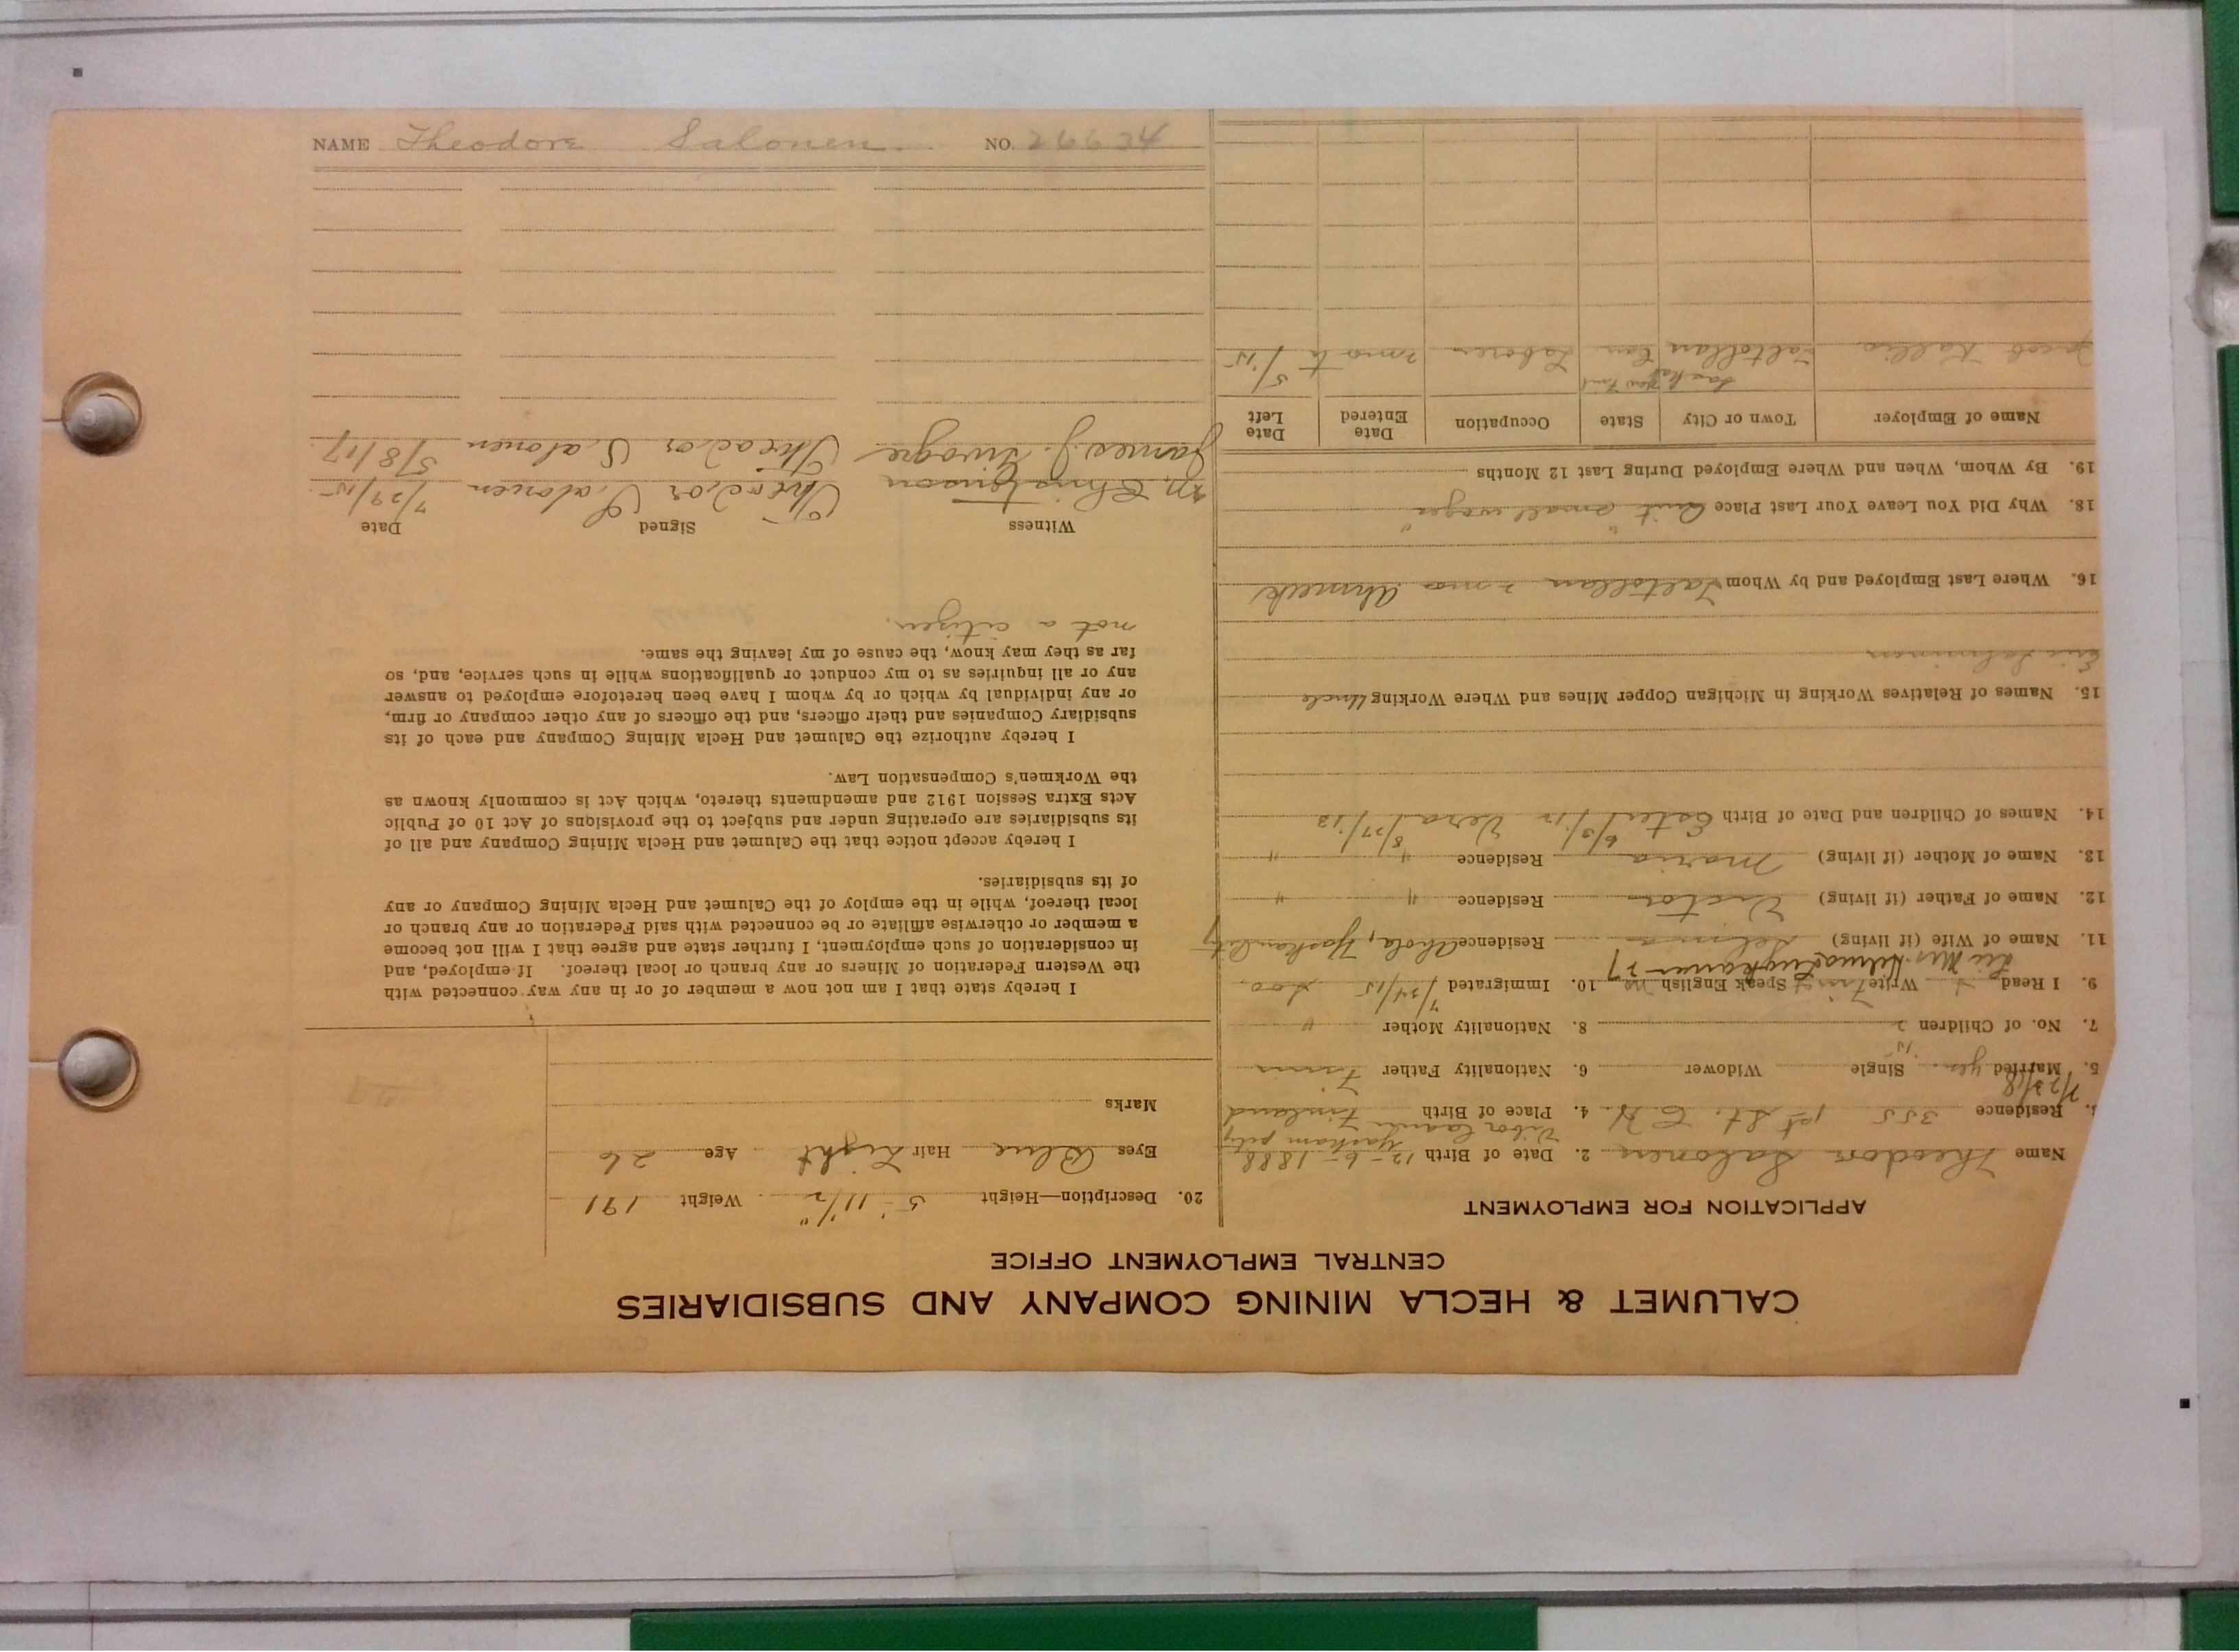 CALUMET & HECLA MINING COMPANY AND SUBSIDIARIES
CENTRAL EMPLOYMENT OFFICE
APPLICATION FOR EMPLOYMENT
Name Theodor Salonen 2. Date of Birth 12-6-1888
Residence 355 1st St. 4. Place of Birth Finland
7/23/18
5. Married yes Single Widower 6. Nationality Father Finn
7. No. of Children 2 8. Nationality Mother "
9. I Read Write Speak English no 10. Immigrated 7/24/15 Soo.
11. Name of Wife (if living) Selma Residence
12. Name of Father (if living) Victor Residence " "
13. Name of Mother (if living) Maria Residence " "
14. Names of Children and Date of Birth Ester 6/3/12 Vera 8/27/13
15. Names of Relatives Working in Michigan Copper Mines and Where Working Uncle
Eric Salminen
16. Where Last Employed and by Whom Ahmeek
18. Why Did You Leave Your Last Place Quit "small wages"
19. By Whom, When and Where Employed During Last 12 Months
Name of Employer Town or City State Occupation Date Entered Date Left
Jacob Kallio Laborer 5/15
20. Description—Height 5' 11 1/2" Weight 191
Eyes Blue Hair Light Age 26
Marks
I hereby state that I am not now a member of or in any way connected with
the Western Federation of Miners or any branch or local thereof. If employed, and
in consideration of such employment, I further state and agree that I will not become
a member or otherwise affiliate or be connected with said Federation or any branch or
local thereof, while in the employ of the Calumet and Hecla Mining Company or any
of its subsidiaries.
I hereby accept notice that the Calumet and Hecla Mining Company and all of
its subsidiaries are operating under and subject to the provisions of Act 10 of Public
Acts Extra Session 1912 and amendments thereto, which Act is commonly known as
the Workmen's Compensation Law.
I hereby authorize the Calumet and Hecla Mining Company and each of its
subsidiary Companies and their officers, and the officers of any other company or firm,
or any individual by which or by whom I have been heretofore employed to answer
any or all inquiries as to my conduct or qualifications while in such service, and, so
far as they may know, the cause of my leaving the same.
not a citizen.
Witness Signed Date
M. Christenson Theodor Salonen 7/29/15
James J. Theodor Salonen 5/8/17
NAME Theodore Salonen NO. 26634